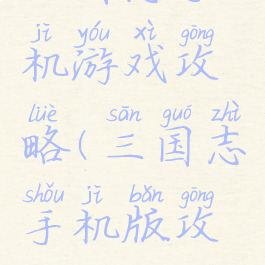 jī yóu xì gōng
机游戏攻
lüè sān guó zhì
略(三国志
shǒu jī bǎn gōng
手机版攻